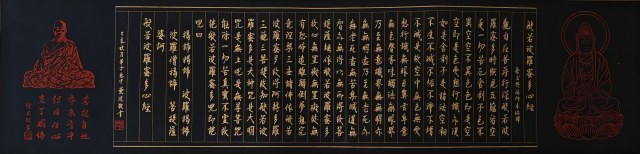 般若波羅蜜多心經
觀自在菩薩行深般若
波羅蜜多時照見五蘊皆空
度一切苦厄舍利子色不
異空空不異色色即是
空空即是色受想行識亦復
如是舍利子是諸法空相
不生不滅不垢不淨不增
不減是故空中無色無受
想行識無眼耳鼻舌身意
無色聲香味觸法無眼界
乃至無意識界無無明亦
無無明盡乃至無老死亦
無老死盡無苦集滅道無
智亦無得以無所得故菩
提薩埵依般若波羅蜜多
故心無罣礙無罣礙故無
有恐怖遠離顛倒夢想究
竟涅槃三世諸佛依般若
波羅蜜多故得阿耨多羅
三藐三菩提故知般若波
羅蜜多是大神咒是大明
咒是無上咒是無等等咒
能除一切苦真實不虛故
說般若波羅蜜多咒即說
咒曰
揭諦揭諦 波羅揭諦
波羅僧揭諦 菩提薩
婆訶
般若波羅蜜多心經
菩提自性
本來清淨
但用此心
直了成佛